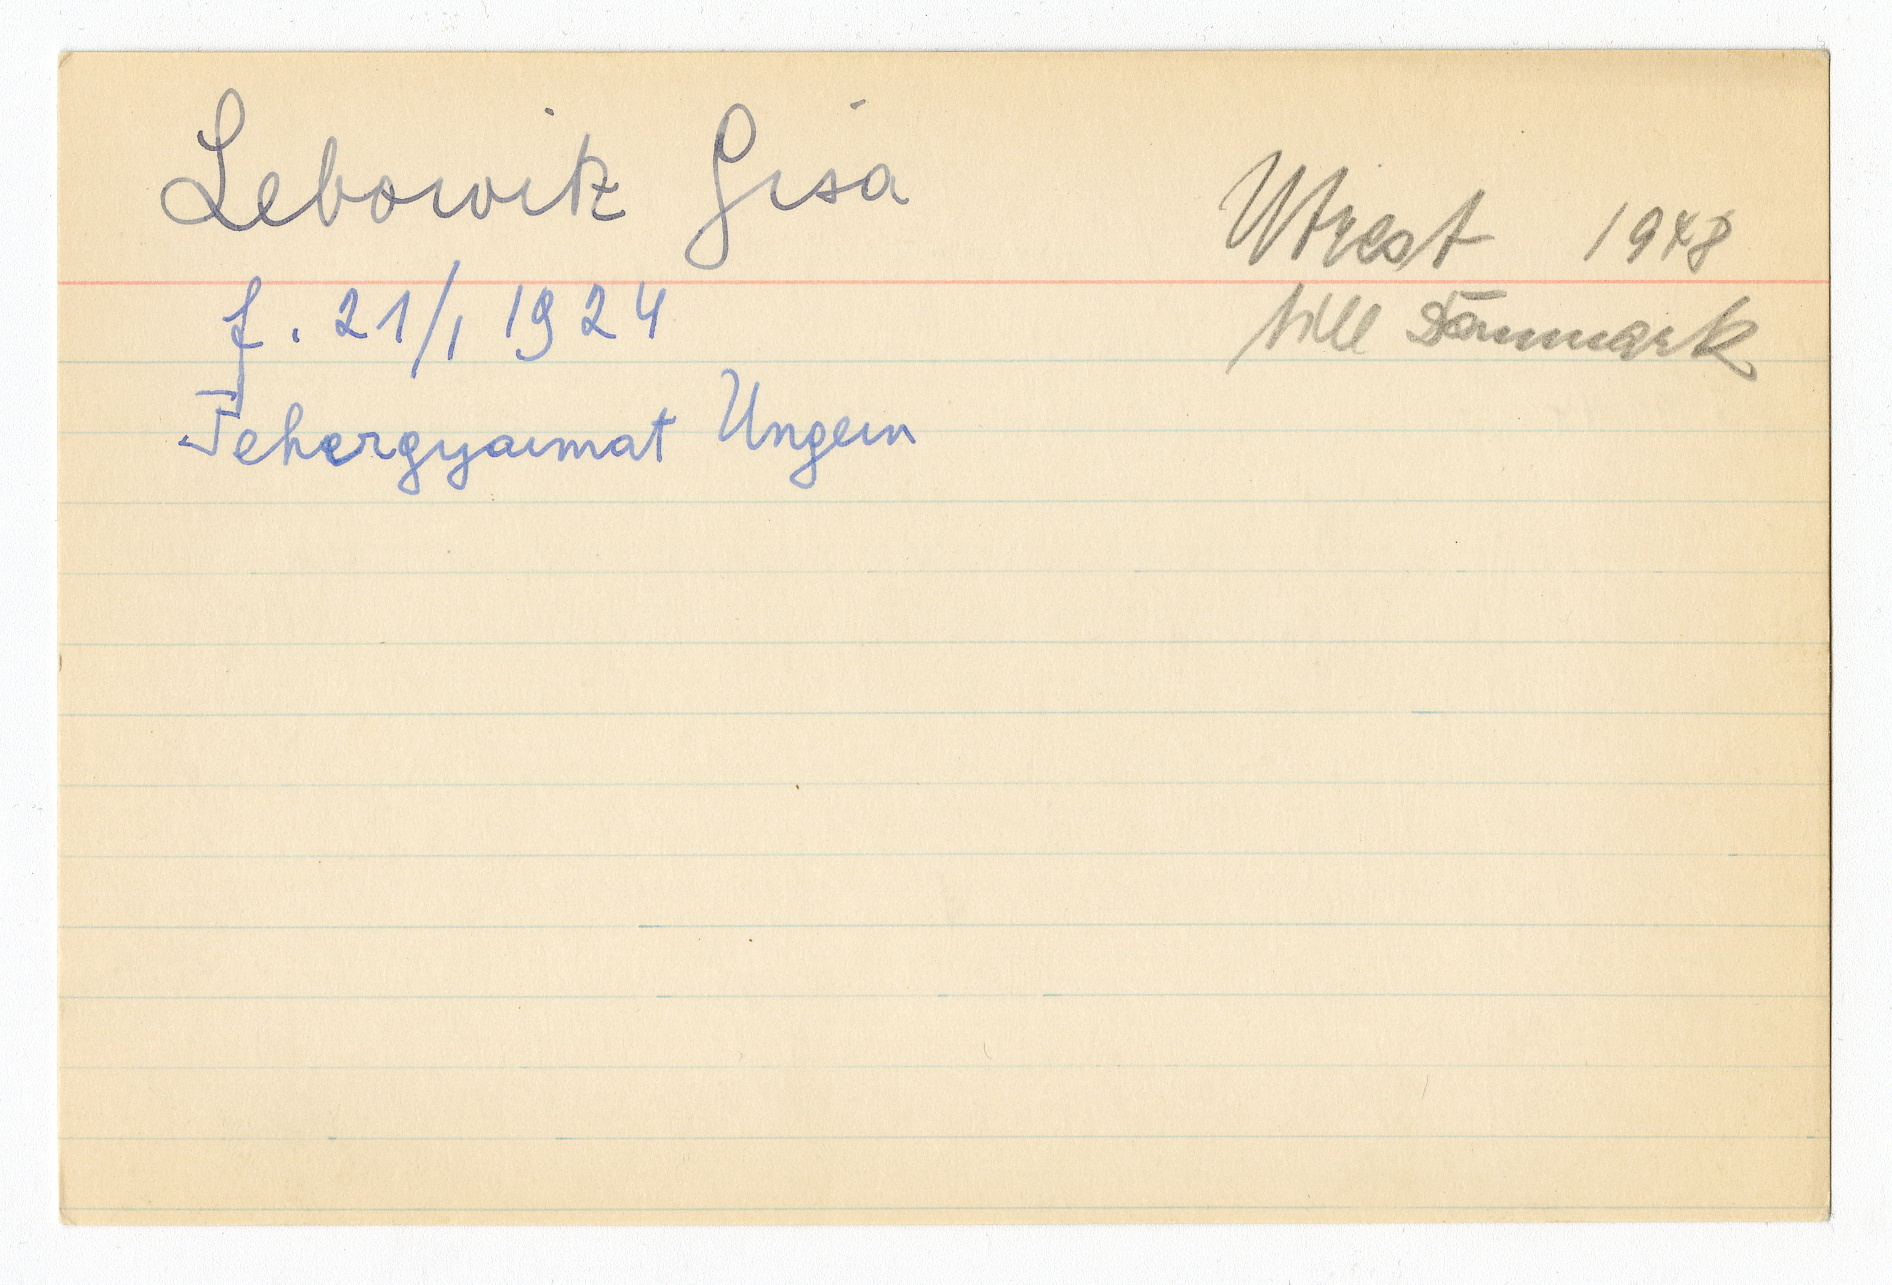 Lebowitz Gisa
Utrest 1948
till Danmark
f. 21/1 1924
Fehergyarmat Ungern